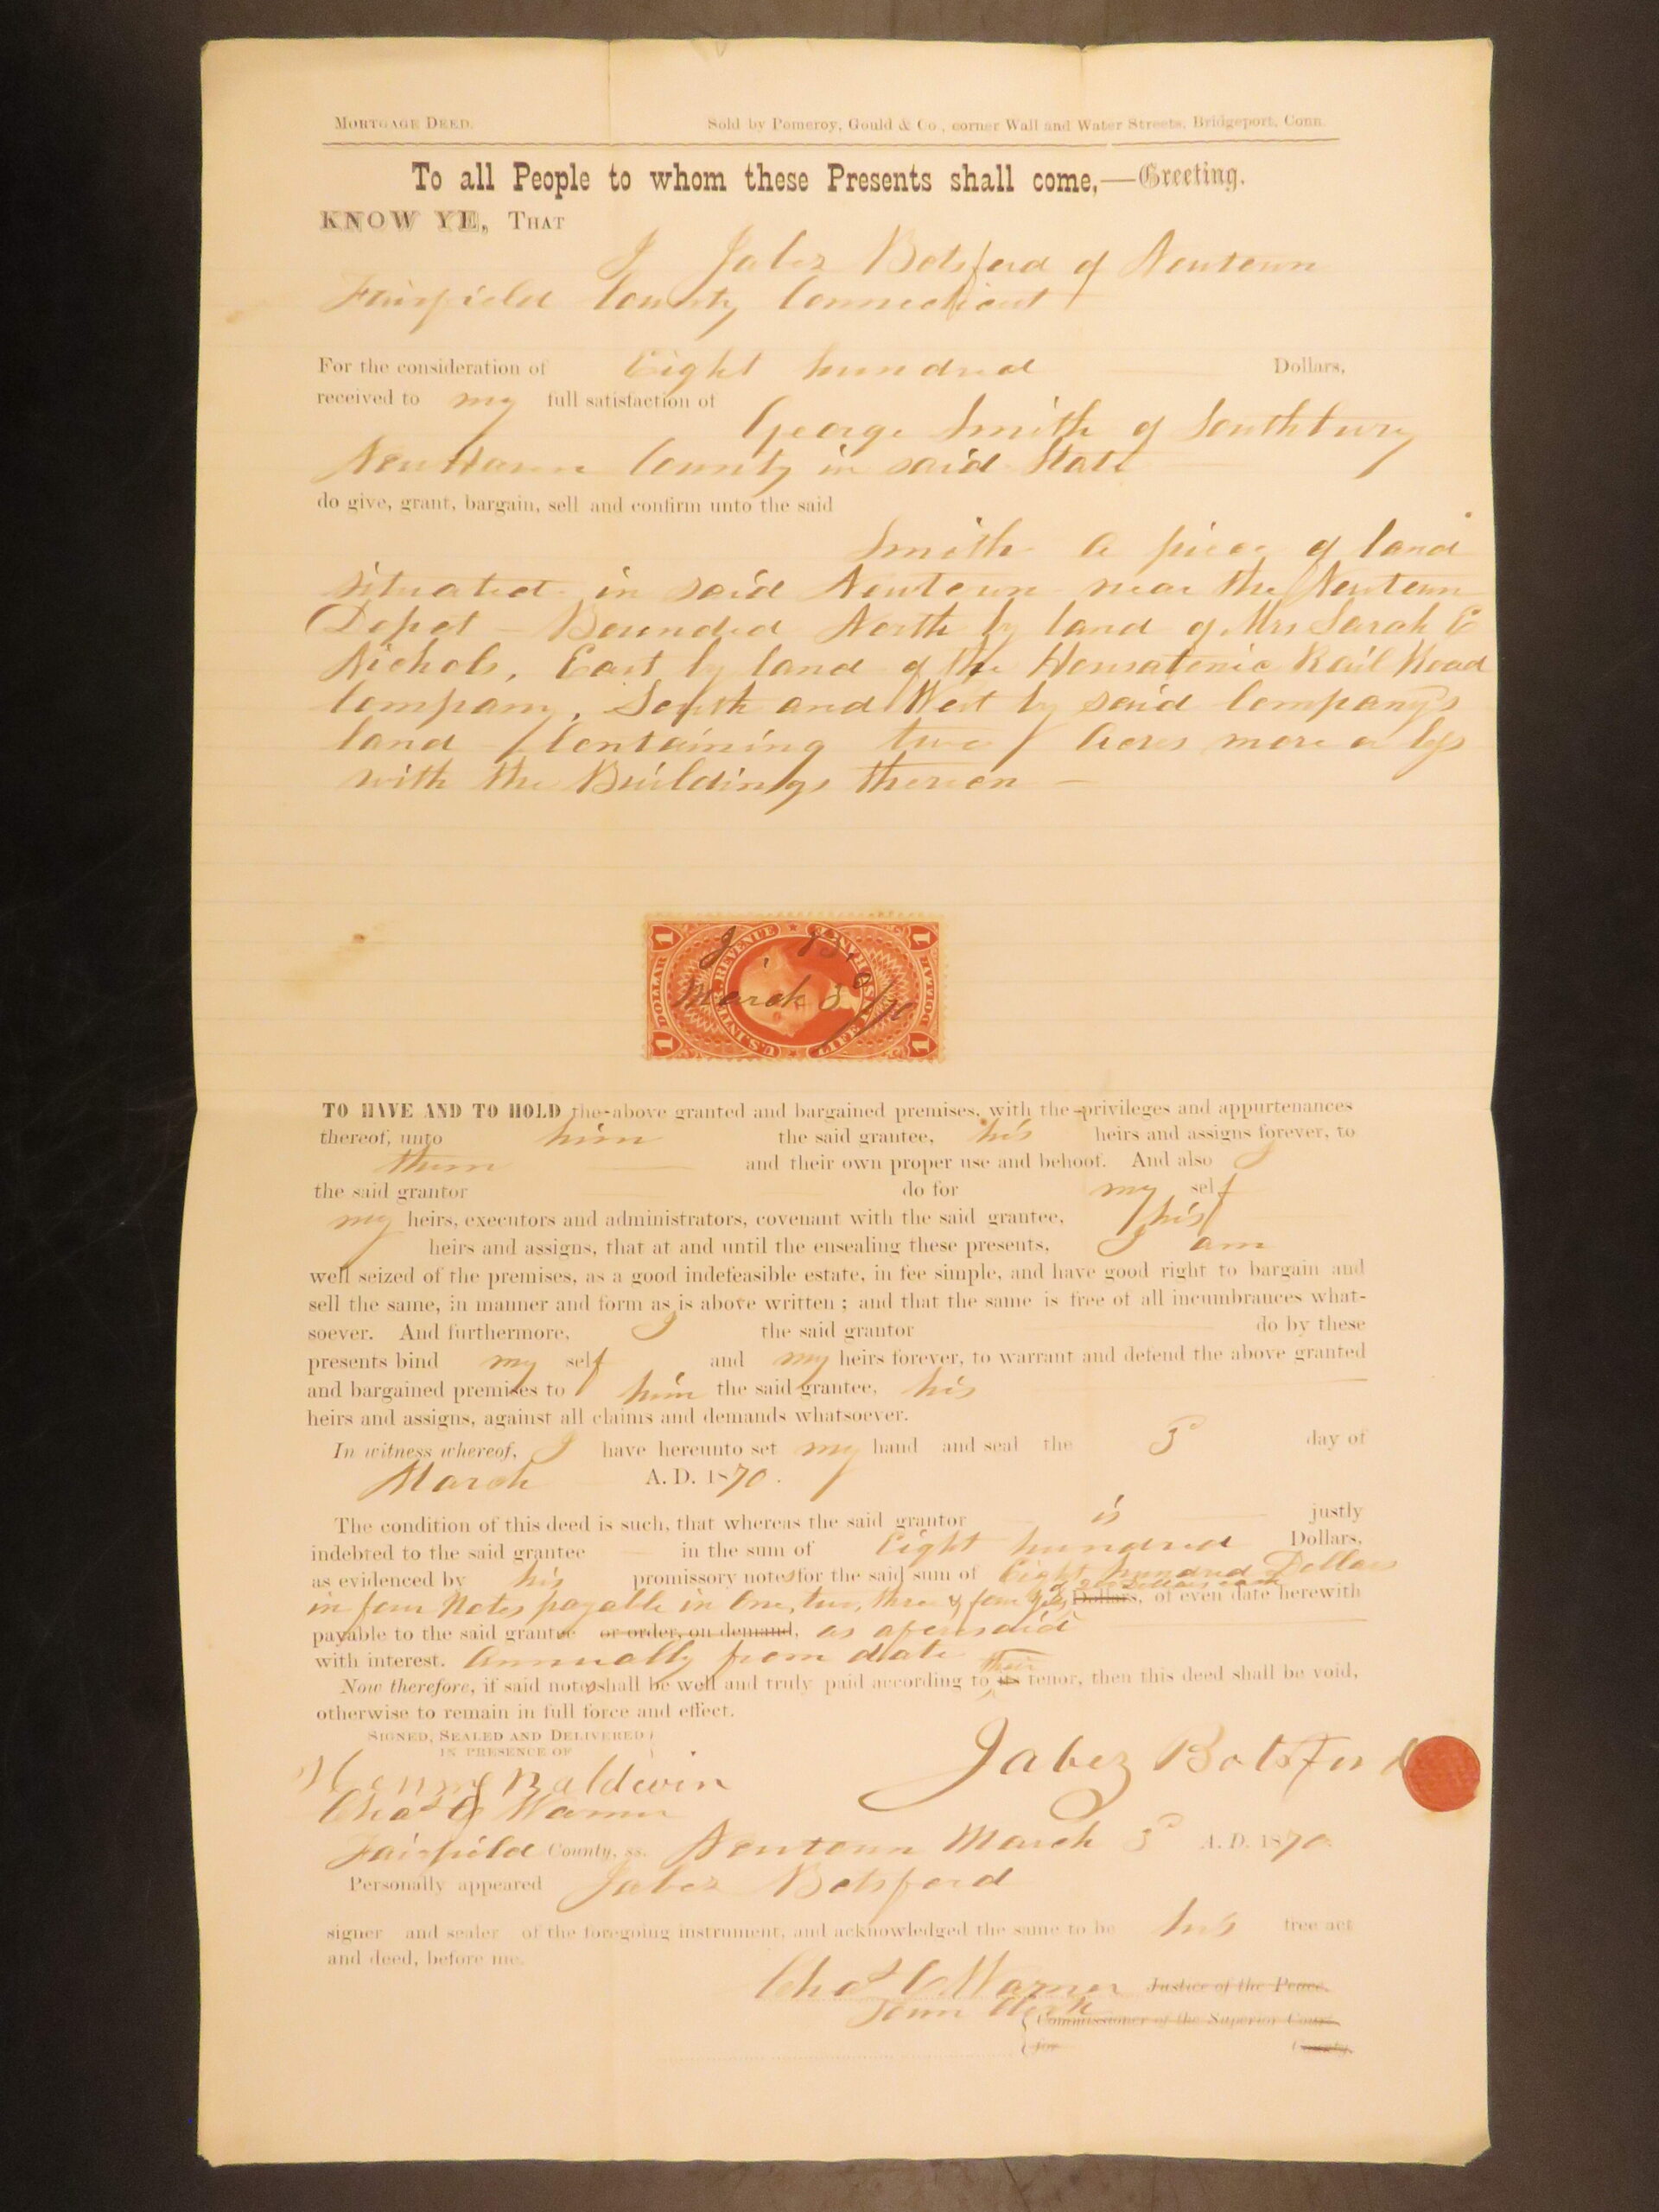 MORTGAGE DEED. Sold by Pomeroy, Gould & Co., corner Wall and Water Streets, Bridgeport, Conn.
To all People to whom these Presents shall come,—Greeting.
KNOW YE, THAT
I Jabez Botsford of Newtown
Fairfield County Connecticut
For the consideration of Eight hundred Dollars,
received to my full satisfaction of
George Smith of Southbury
New Haven County in said State
do give, grant, bargain, sell and confirm unto the said
Smith a piece of land
situated in said Newtown near the Newtown
Depot - Bounded North by land of Mrs Sarah E
Nichols, East by land of the Housatonic Rail Road
Company, South and West by said Company's
land - (Containing two) Acres more or less
with the Buildings thereon -
1 DOLLAR 1 U.S. INTER. REVENUE LIFE INSURANCE 1 DOLLAR 1
J B.
March 3d/70
TO HAVE AND TO HOLD the above granted and bargained premises, with the privileges and appurtenances
thereof, unto him the said grantee, his heirs and assigns forever, to
them and their own proper use and behoof. And also I
the said grantor do for my self
my heirs, executors and administrators, covenant with the said grantee, his
heirs and assigns, that at and until the ensealing these presents, I am
well seized of the premises, as a good indefeasible estate, in fee simple, and have good right to bargain and
sell the same, in manner and form as is above written; and that the same is free of all incumbrances what-
soever. And furthermore, I the said grantor do by these
presents bind my self and my heirs forever, to warrant and defend the above granted
and bargained premises to him the said grantee, his
heirs and assigns, against all claims and demands whatsoever.
In witness whereof, I have hereunto set my hand and seal the 3d day of
March A. D. 1870.
The condition of this deed is such, that whereas the said grantor is justly
indebted to the said grantee in the sum of Eight hundred Dollars,
as evidenced by his promissory notes for the said sum of Eight hundred Dollars
in four Notes payable in One, two, three & four yrs of 200 Dollars each Dollars, of even date herewith
payable to the said grantee or order, on demand, as aforesaid
with interest. Annually from date
Now therefore, if said notes shall be well and truly paid according to its their tenor, then this deed shall be void,
otherwise to remain in full force and effect.
SIGNED, SEALED AND DELIVERED
IN PRESENCE OF
Jabez Botsford
Baldwin
Chas C Warner
Fairfield County, ss. Newtown March 3d A. D. 1870
Personally appeared Jabez Botsford
signer and sealer of the foregoing instrument, and acknowledged the same to be his free act
and deed, before me.
Chas C Warner Justice of the Peace.
Town Clerk
Commissioner of the Superior Court
for County.